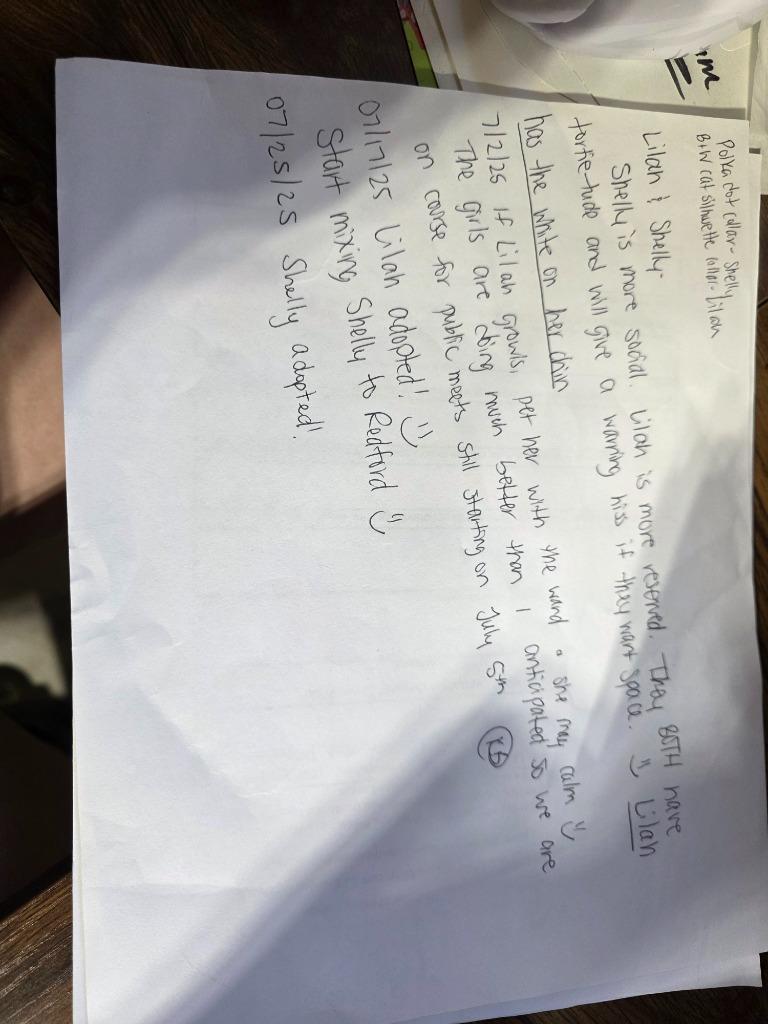 Polka dot collar - Shelly
B+W cat silhuette collar - Lilah
Lilah & Shelly-
Shelly is more social. Lilah is more reserved. They BOTH have
tortie-tude and will give a warning hiss if they want space. :) Lilah
has the white on her chin
7/2/25 If Lilah growls, pet her with the wand & she may calm :)
The girls are doing much better than I anticipated so we are
on course for public meets still starting on July 5th KB
07/17/25 Lilah adopted! :)
Start mixing Shelly to Redford :)
07/25/25 Shelly adopted!